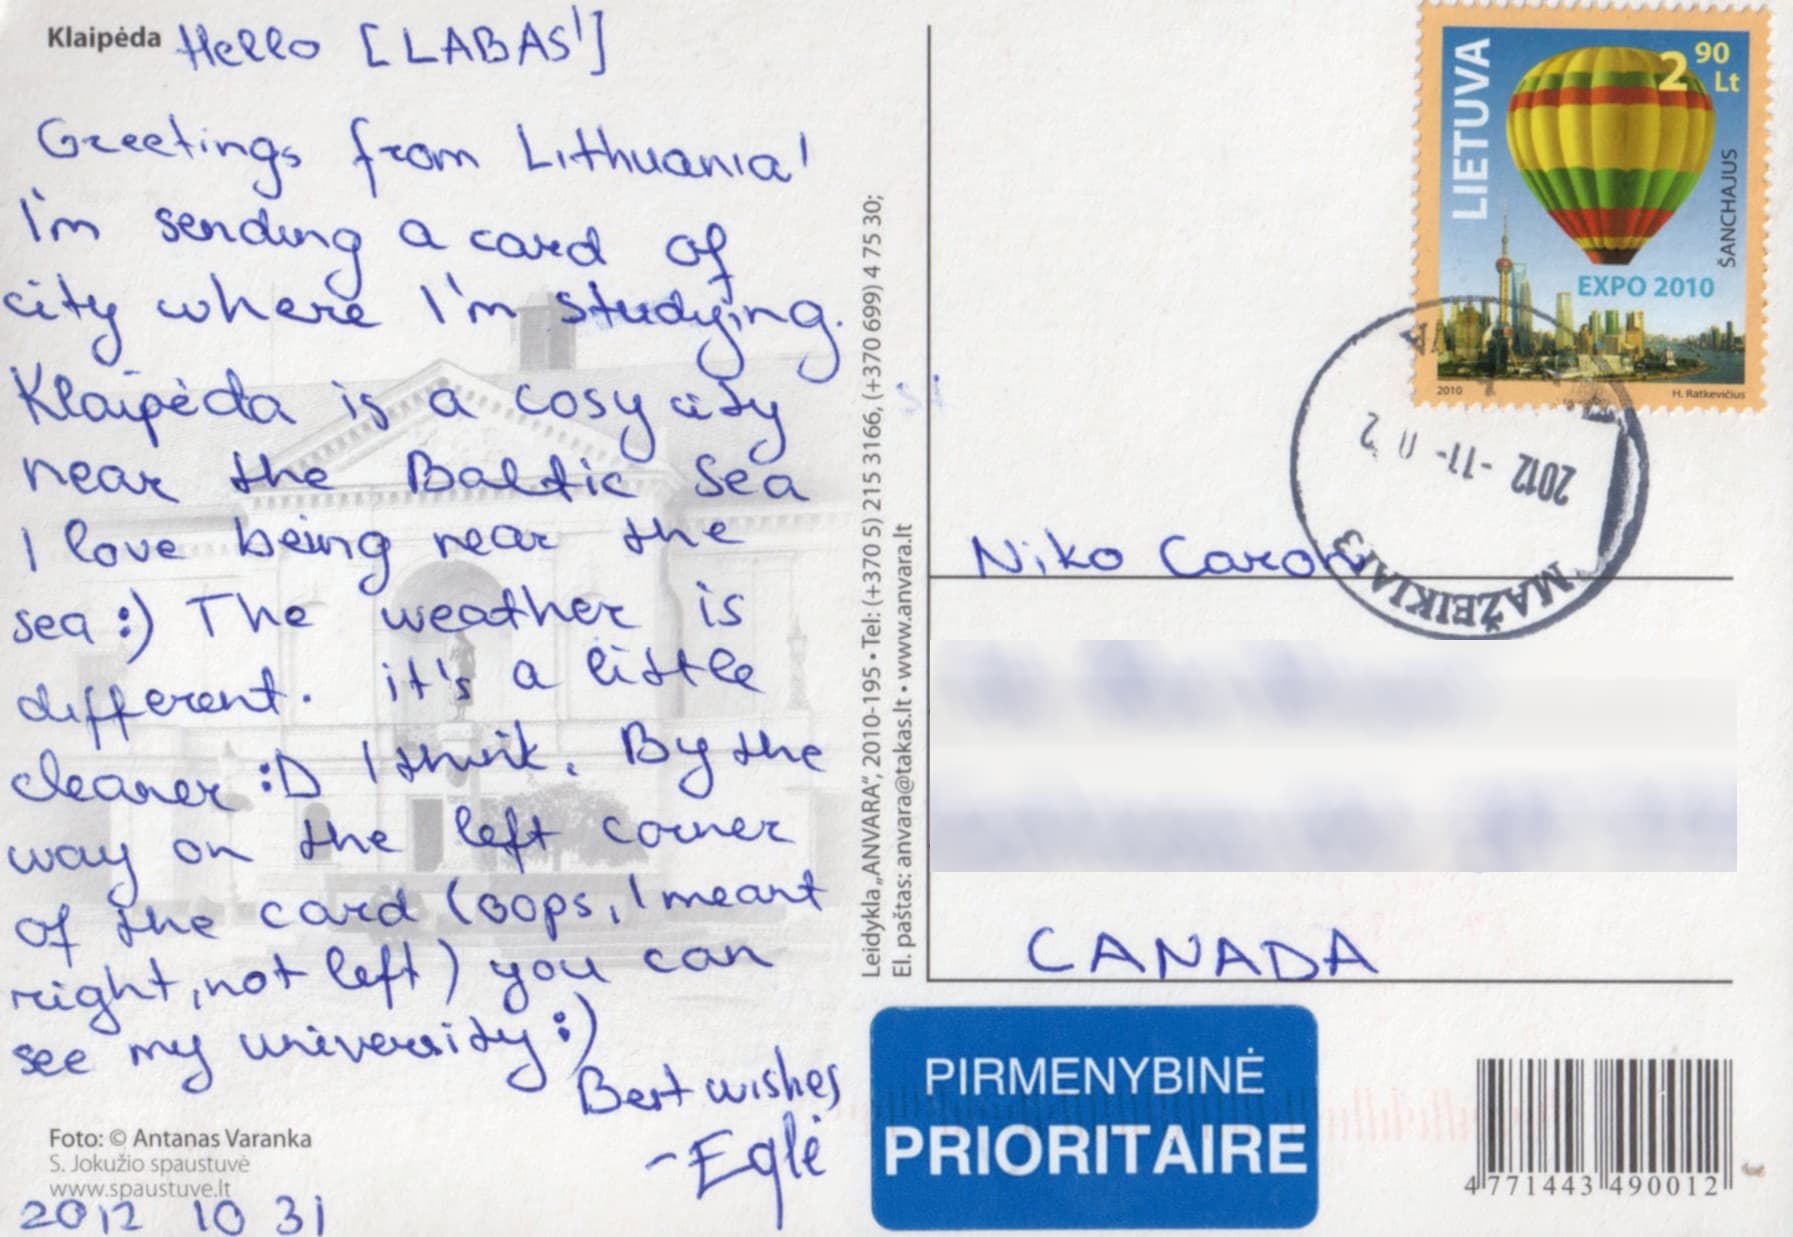 Klaipėda Hello [LABAS!]
Greetings from Lithuania!
I'm sending a card of
city where I'm studying.
Klaipėda is a cosy city
near the Baltic Sea
I love being near the
sea :) The weather is
different. it's a little
cleaner :D I think. By the
way on the left corner
of the card (oops, I meant
right, not left) you can
see my university :)
Best wishes
-Eglė
Foto: © Antanas Varanka
S. Jokužio spaustuvė
www.spaustuve.lt
2012 10 31
Leidykla „ANVARA“, 2010-195 • Tel: (+370 5) 215 3166, (+370 699) 4 75 30;
El. paštas: anvara@takas.lt • www.anvara.lt
LIETUVA
2 90 Lt
ŠANCHAJUS
EXPO 2010
2010 H. Ratkevičius
2012 -11- 0 2
MAŽEIKIAI 3
Niko Caron
CANADA
PIRMENYBINĖ
PRIORITAIRE
4 771443 490012